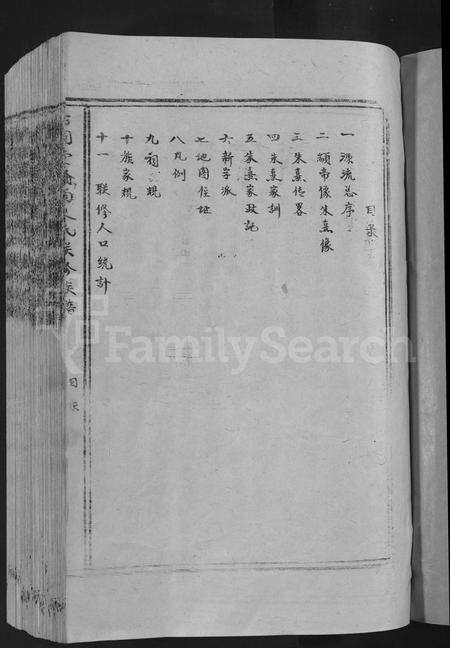 目录
一 源流总序
二 颛帝像朱熹像
三 朱熹传畧
四 朱熹家训
五 朱熹家政記
六 新字派
七 地图位址
八 凡例
九 祠规
十 族家規
十一 联修人口統計
氏联修族谱
目录
FamilySearch